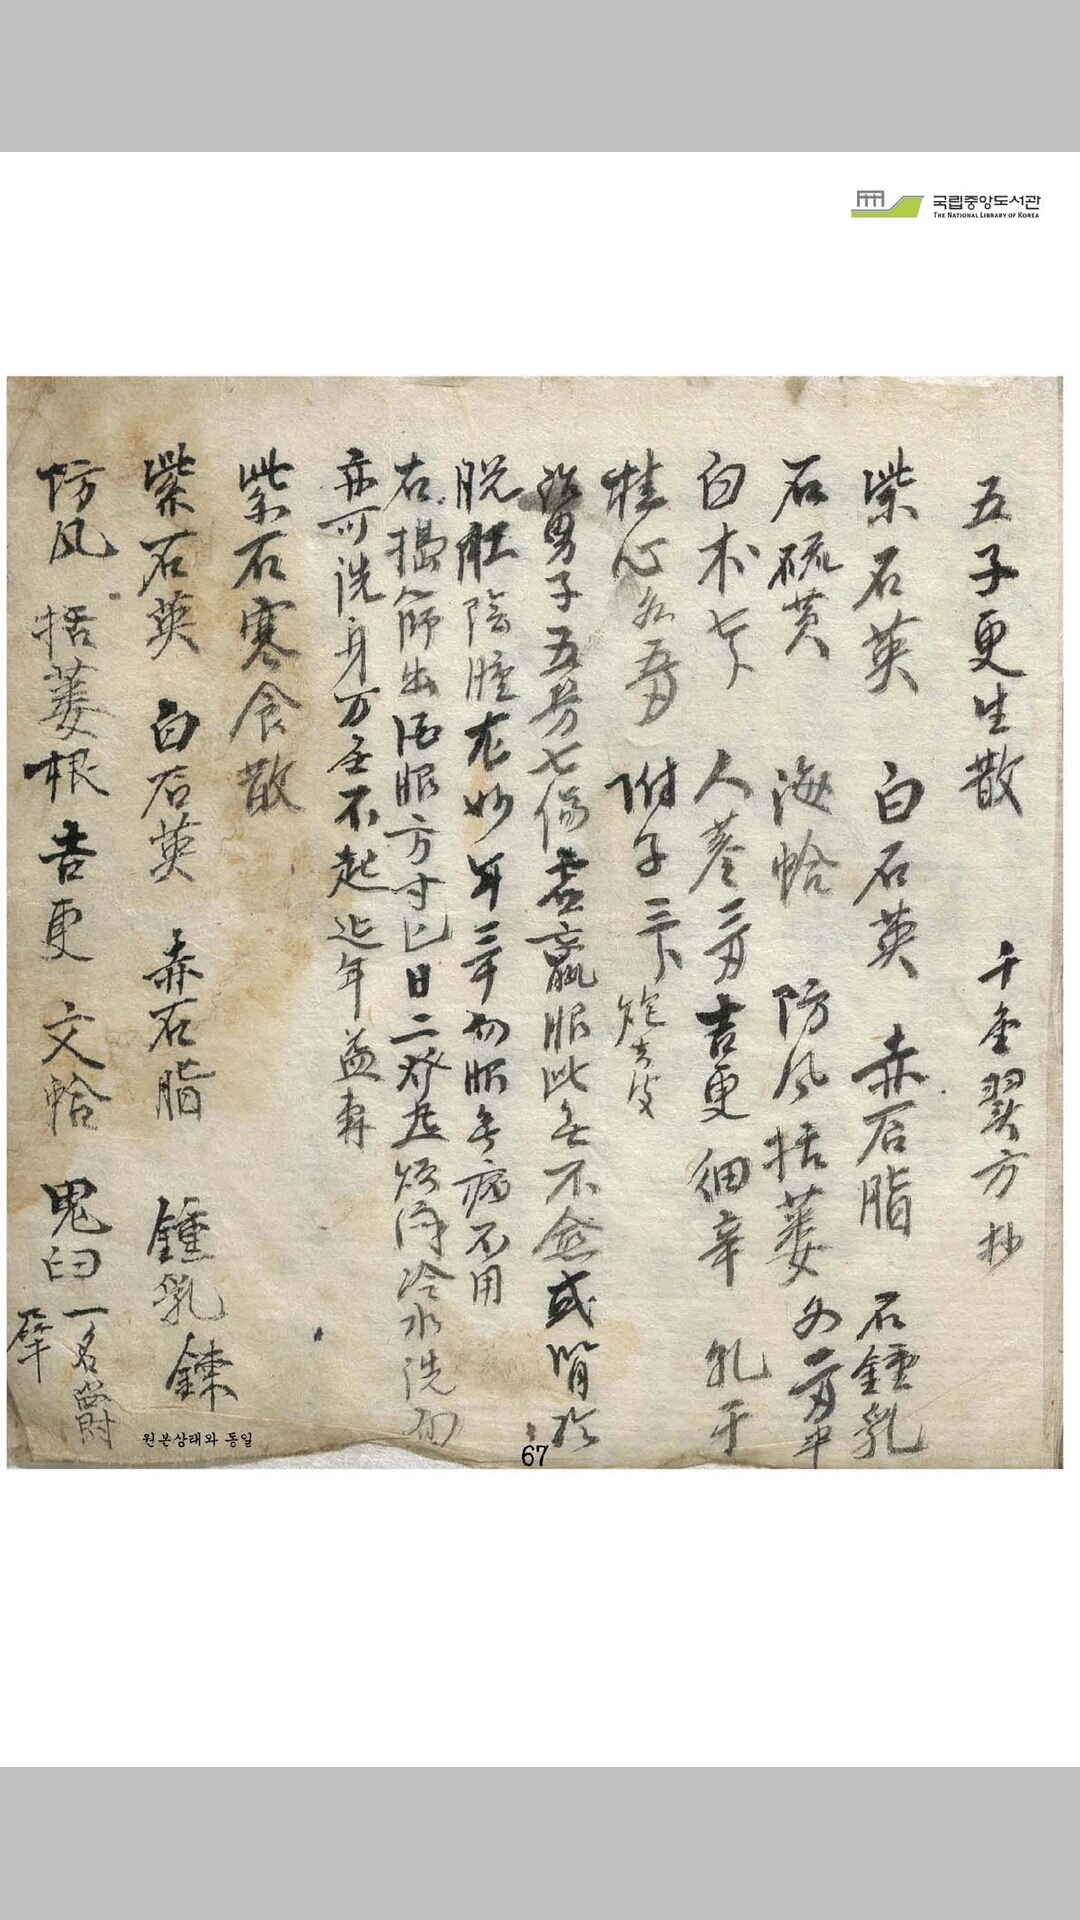 국립중앙도서관
THE NATIONAL LIBRARY OF KOREA
五子更生散 千金翼方抄
紫石英 白石英 赤石脂 石鍾乳
石硫黄 海蛤 防风 括蔞 各二両半
白术七卜 人参三両 吉更 細辛 乳干
桂心各五両 附子三卜 炮去皮
治男子五劳七傷虚羸服此无不愈或腎冷
脱肛陰腫尤妙年三十勿服无病不用
右搗篩出酒服方寸匕日二發虚煩浄冷水洗勿
亦可洗身万无不起延年益寿
紫石寒食散
紫石英 白石英 赤石脂 鍾乳 鍊
防风 括蔞根 吉更 文蛤 鬼臼 一名爵犀
원본상태와 동일
67